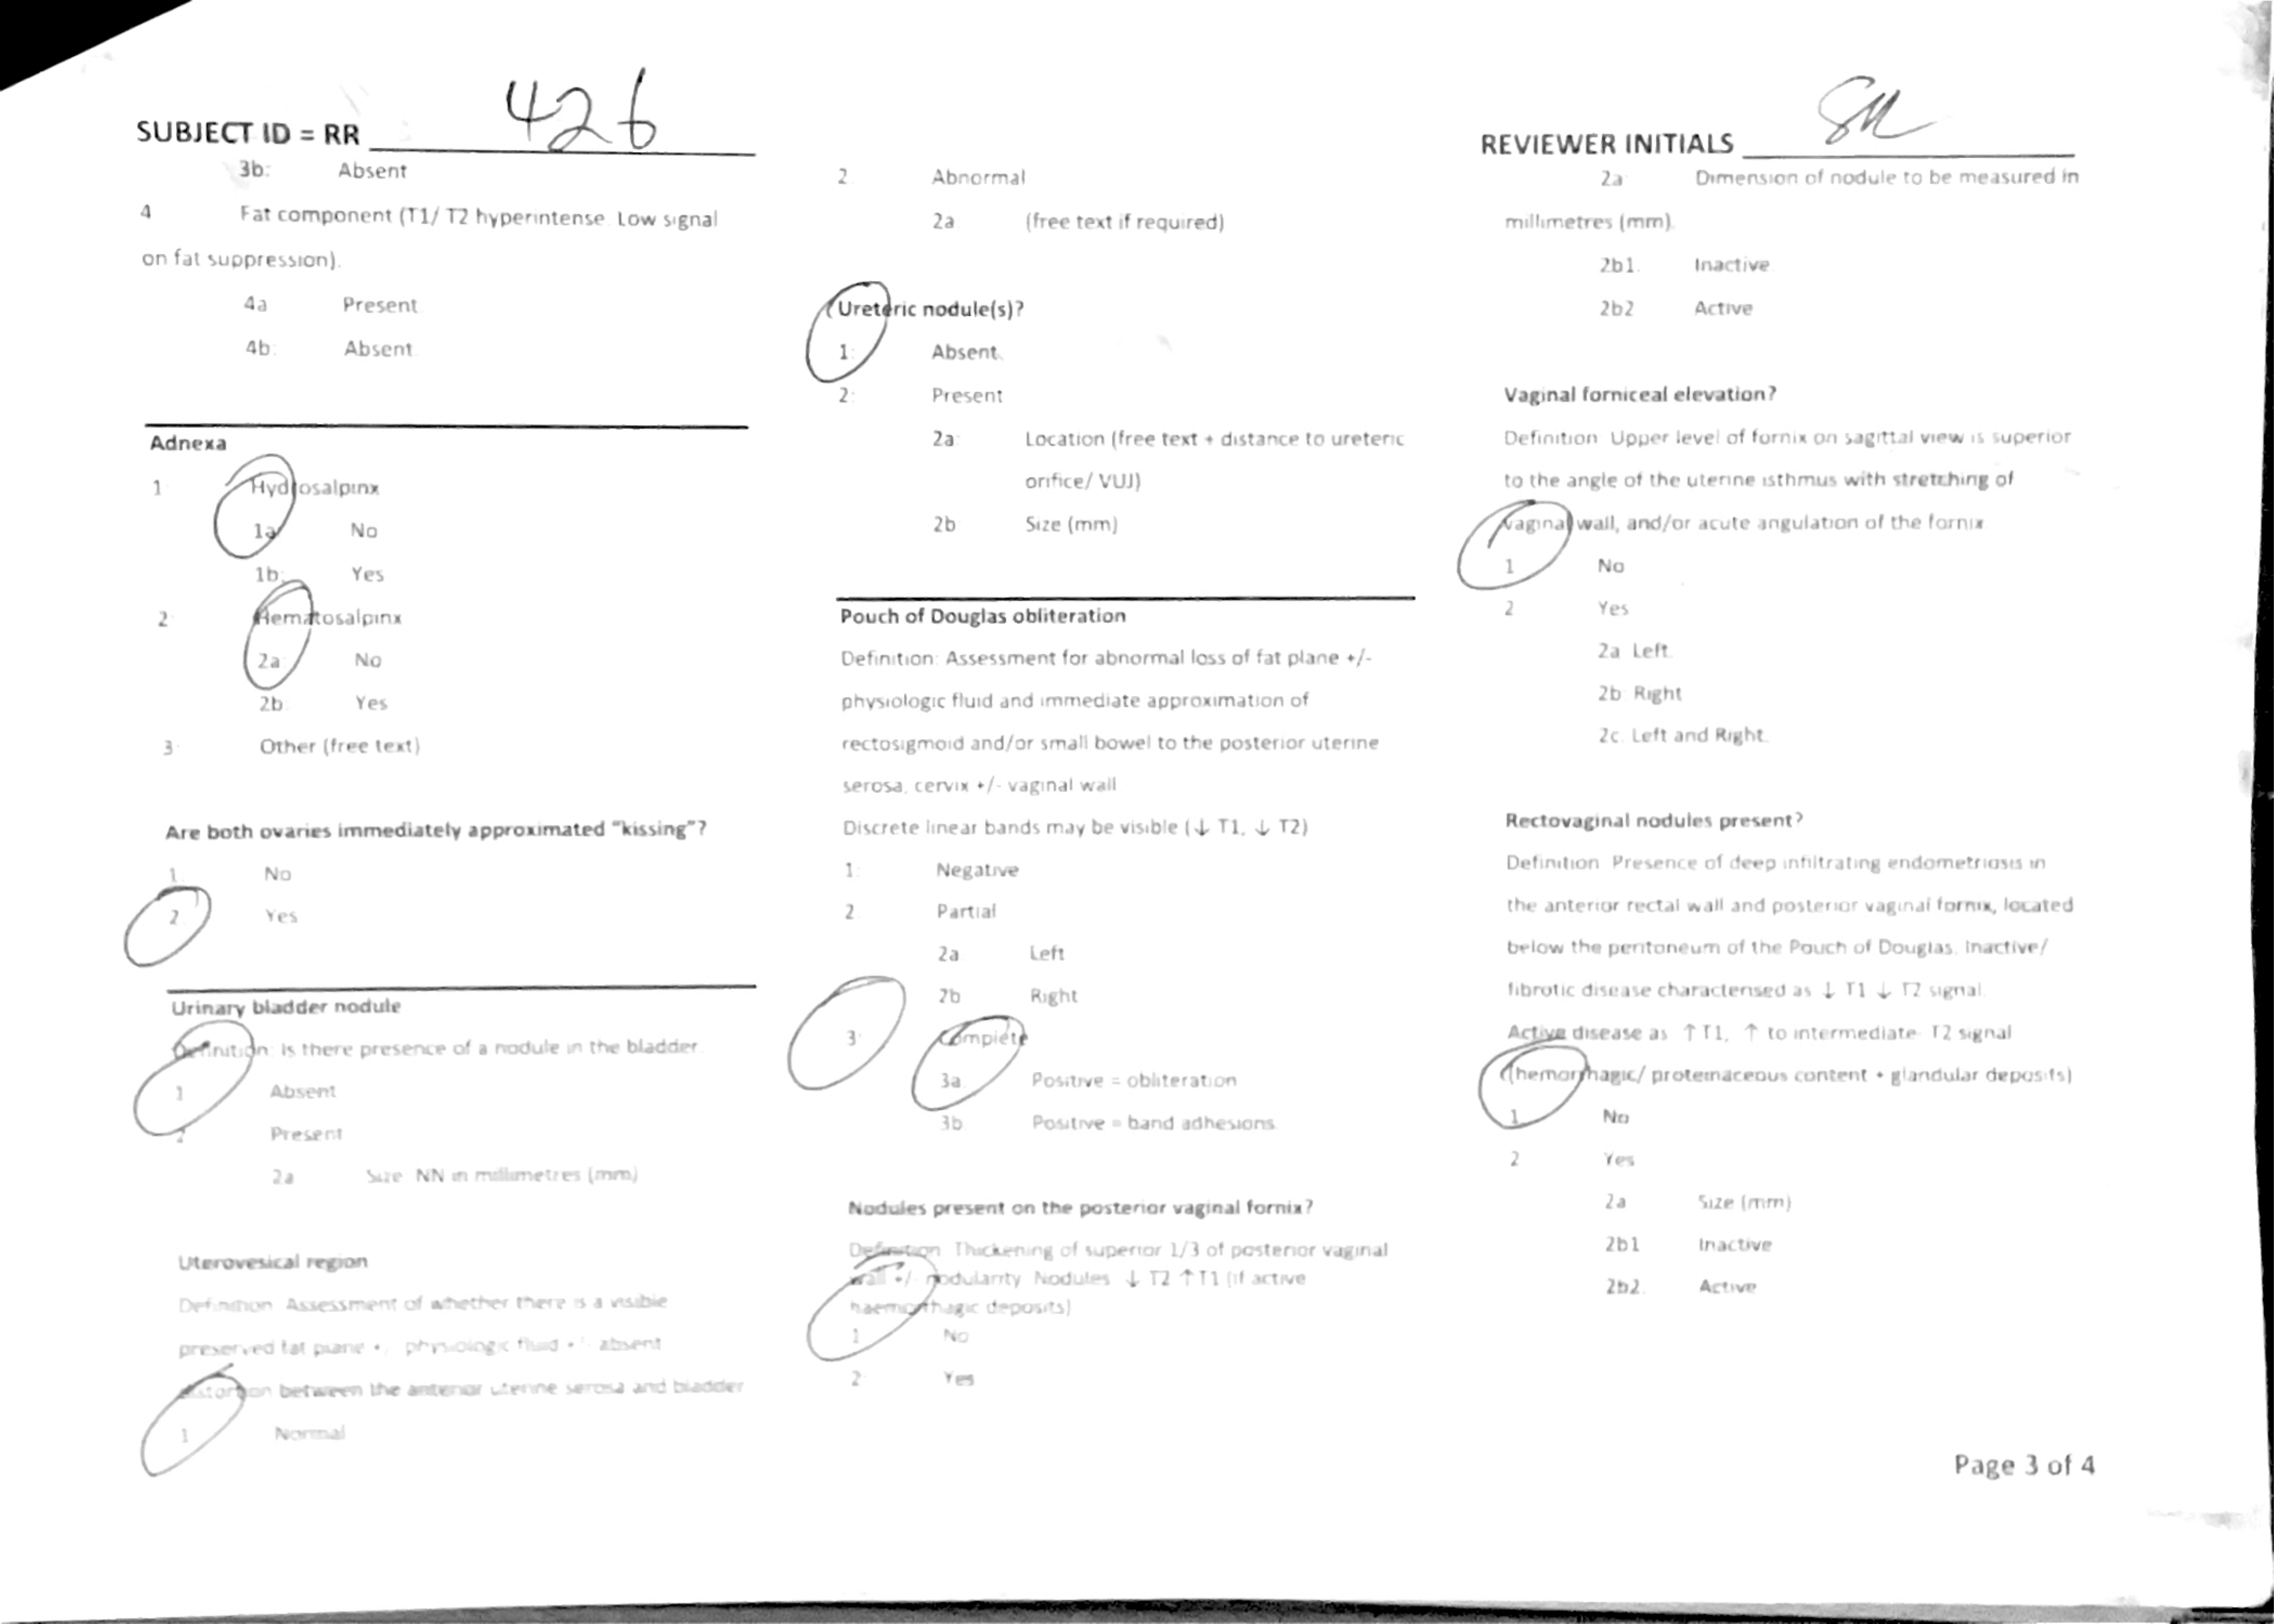 SUBJECT ID = RR 426
REVIEWER INITIALS
3b: Absent
4 Fat component (T1/ T2 hyperintense. Low signal
on fat suppression).
4a Present
4b: Absent
Adnexa
1 Hydrosalpinx
1a No
1b: Yes
2: Hematosalpinx
2a: No
2b: Yes
3: Other (free text)
Are both ovaries immediately approximated “kissing”?
1: No
2: Yes
Urinary bladder nodule
Definition: Is there presence of a nodule in the bladder
1 Absent
2 Present
2a Size NN in millimetres (mm)
Uterovesical region
Definition Assessment of whether there is a visible
preserved fat plane +/- physiologic fluid +/- absent
distortion between the anterior uterine serosa and bladder
1 Normal
2 Abnormal
2a (free text if required)
Ureteric nodule(s)?
1: Absent
2: Present
2a: Location (free text + distance to ureteric
orifice/ VUJ)
2b Size (mm)
Pouch of Douglas obliteration
Definition: Assessment for abnormal loss of fat plane +/-
physiologic fluid and immediate approximation of
rectosigmoid and/or small bowel to the posterior uterine
serosa, cervix +/- vaginal wall
Discrete linear bands may be visible (↓ T1, ↓ T2)
1: Negative
2 Partial
2a Left
2b Right
3: Complete
3a Positive = obliteration
3b Positive = band adhesions.
Nodules present on the posterior vaginal fornix?
Definition Thickening of superior 1/3 of posterior vaginal
wall +/- nodularity Nodules ↓ T2 ↑ T1 (if active
haemorrhagic deposits)
1 No
2: Yes
2a: Dimension of nodule to be measured in
millimetres (mm).
2b1. Inactive
2b2 Active
Vaginal forniceal elevation?
Definition Upper level of fornix on sagittal view is superior
to the angle of the uterine isthmus with stretching of
vaginal wall, and/or acute angulation of the fornix
1 No
2 Yes
2a Left.
2b Right
2c: Left and Right.
Rectovaginal nodules present?
Definition Presence of deep infiltrating endometriosis in
the anterior rectal wall and posterior vaginal fornix, located
below the peritoneum of the Pouch of Douglas. Inactive/
fibrotic disease characterised as ↓ T1 ↓ T2 signal.
Active disease as ↑ T1, ↑ to intermediate T2 signal
(hemorrhagic/ proteinaceous content + glandular deposits)
1 No
2 Yes
2a Size (mm)
2b1 Inactive
2b2. Active
Page 3 of 4